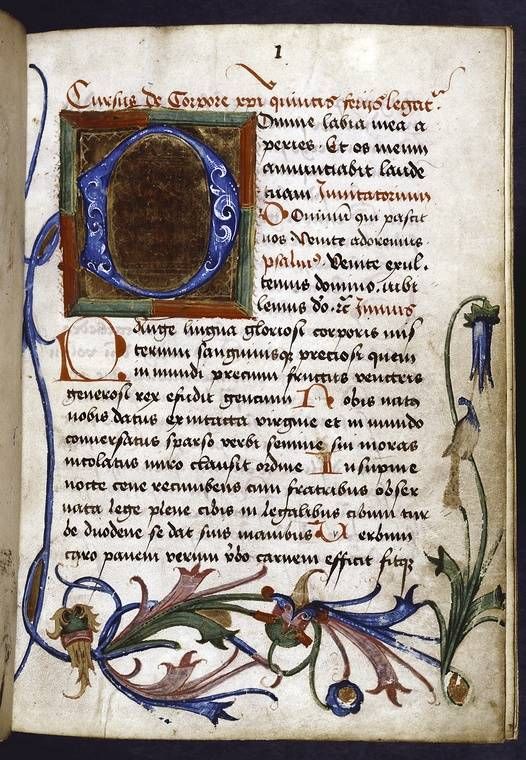 1
Cursus de Corpore xpi quintis ferijs legitr
Domine labia mea a
peries. Et os meum
annunciabit laude
tuam Inuitatorium
Dominum qui pascit
nos. Venite adoremus.
psalmus. Venite exul.
temus domino. iubi
lemus do. rc Imnus
Pange lingua gloriosi corporis mis
terium sanguinisque preciosi quem
in mundi precium fructus ventris
generosi rex efudit gencium Nobis nato
nobis datus ex intacta virgine et in mundo
conuersatus sparso verbi semine sui moras
incolatus miro clausit ordine In supme
nocte cene recumbens cum fratribus obser
uata lege plene cibis in legalibus cibum tur
be duodene se dat suis manibus Verbum
caro panem verum vbo carnem efficit fitque